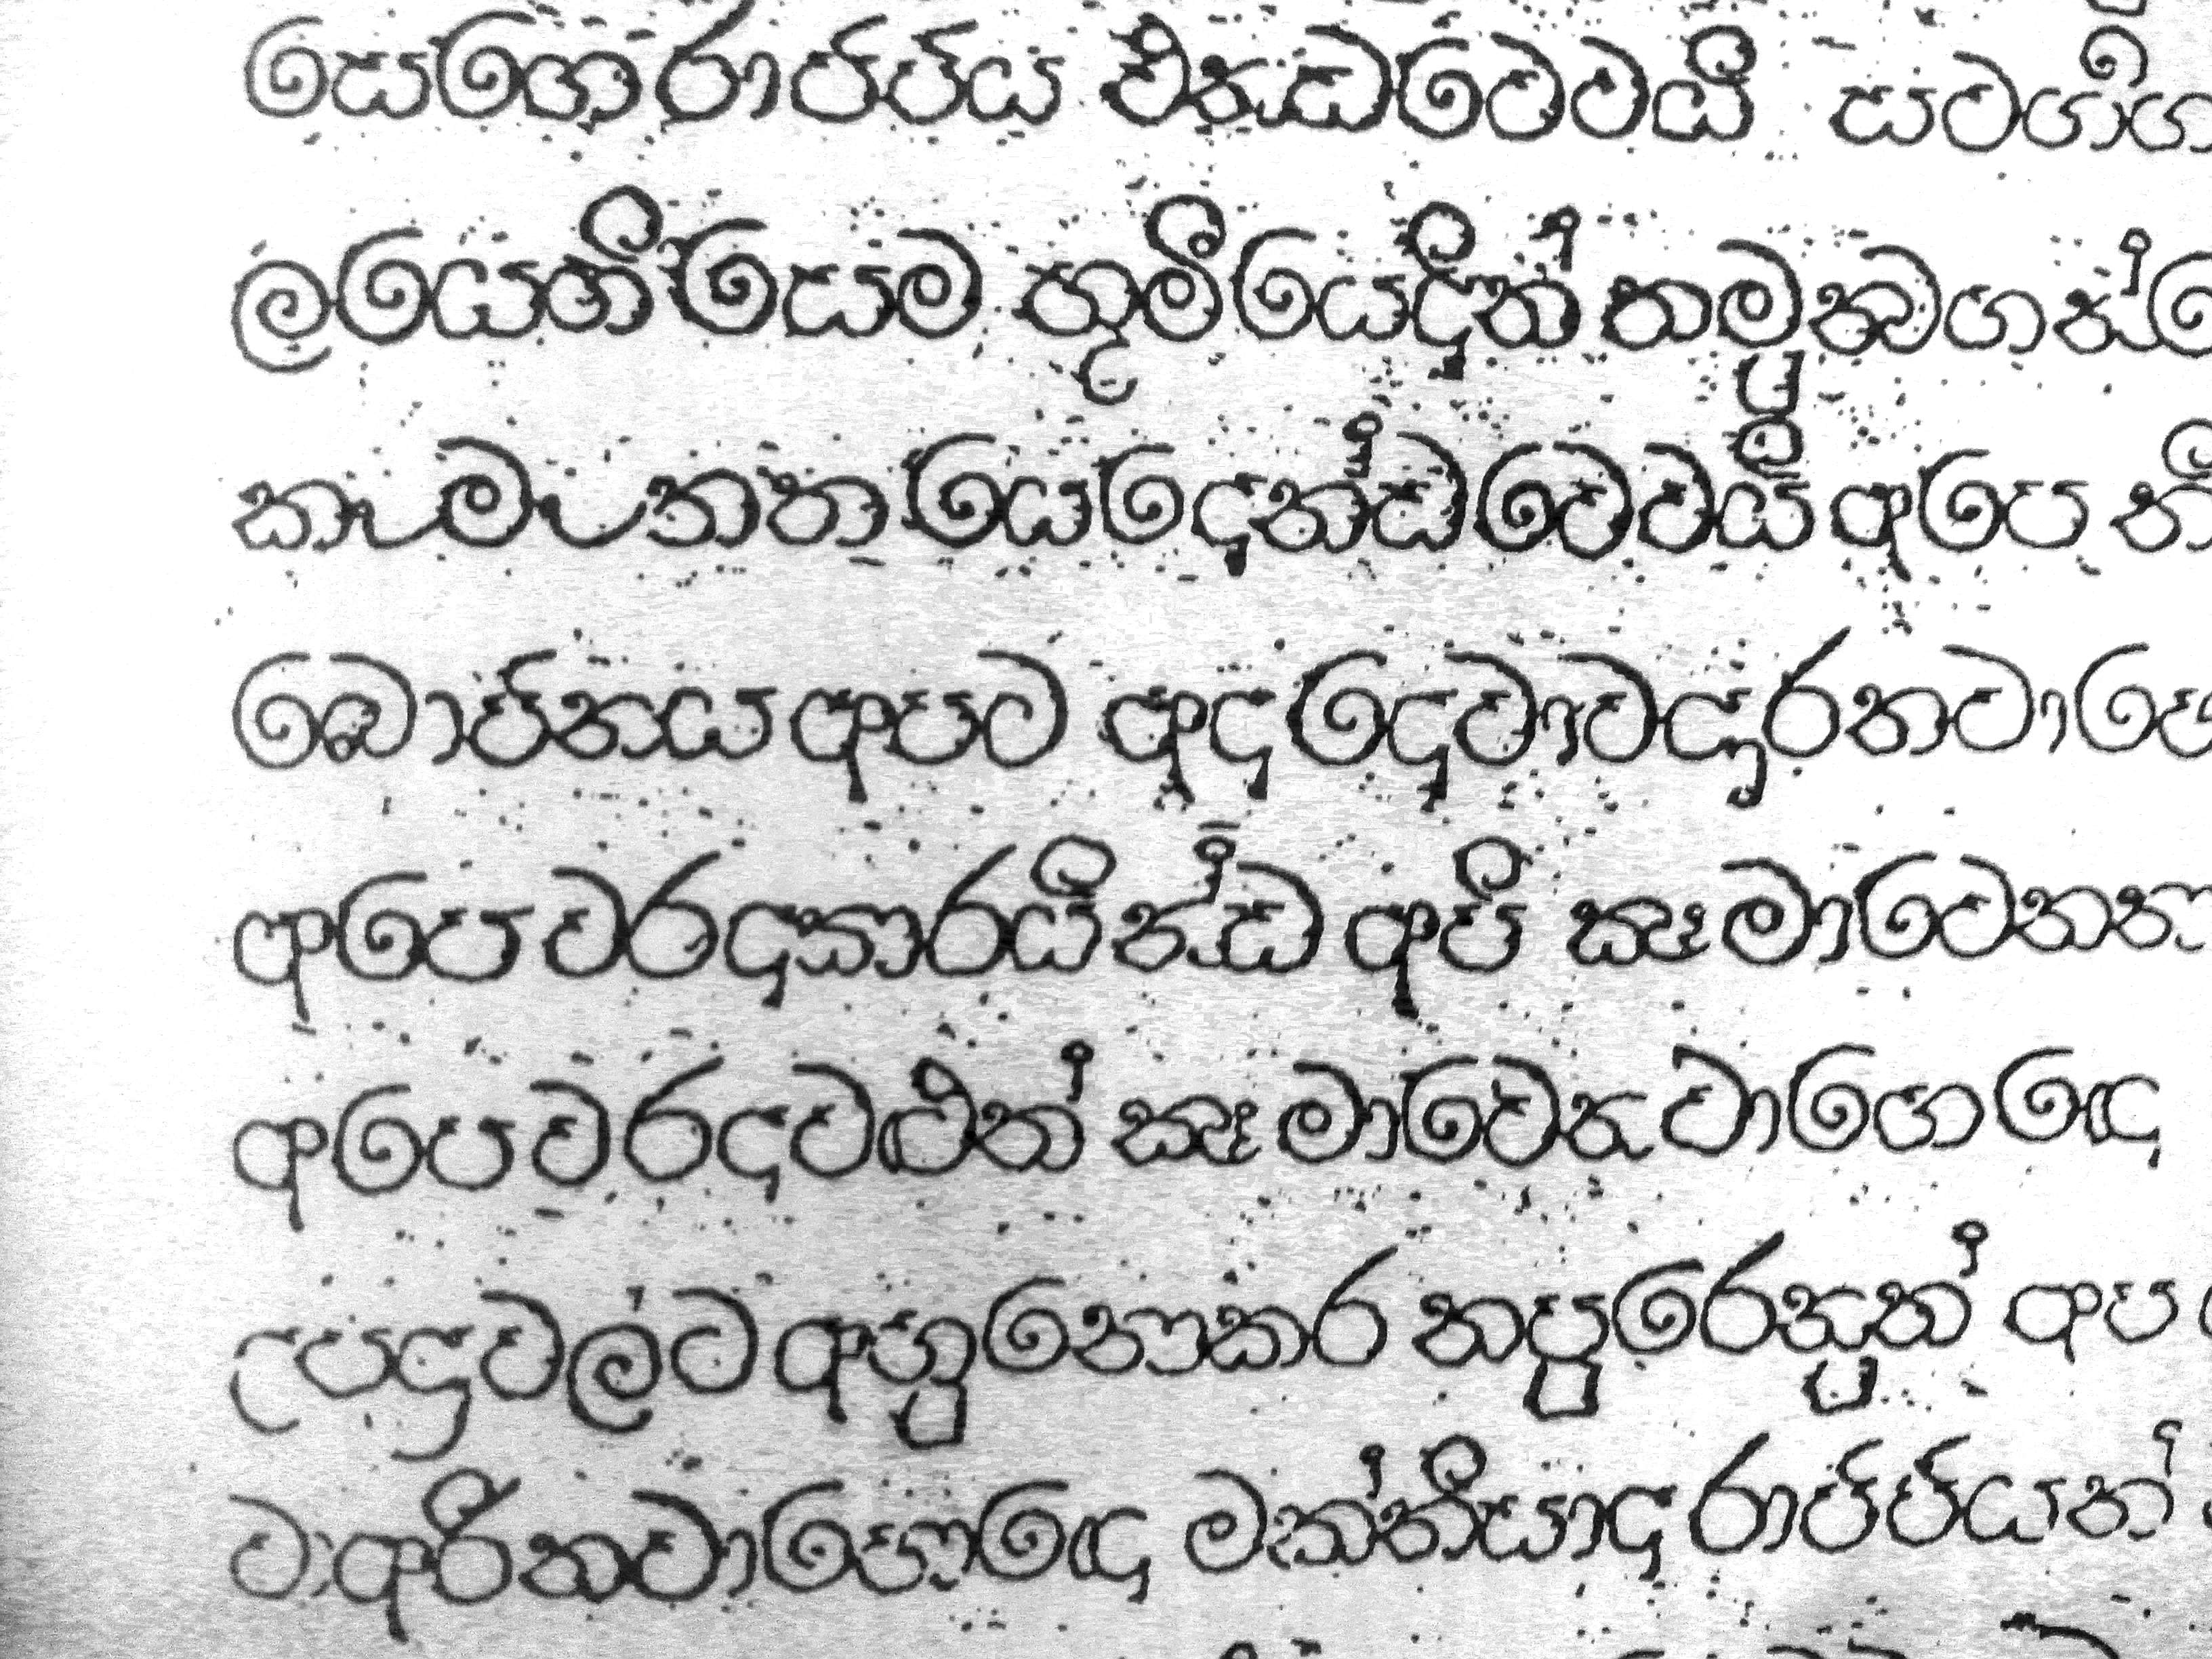 සෙගෙරාජ්ජ්ය එනඩවෙවයි සවගීග
ලයෙහිසෙම භූමියෙදින් තමුන්බගෙන්
කැමැත්ත යෙදෙන්ඩවෙවයි අපෙ
බොජනය අපට අද දෙවාවදුරනවා
අපෙ වරදකාරයින්ඩ අපි කෂමාවෙනන
අපෙ වරදවළින් කෂමාවෙනවාගෙ ඳෙ
උපද්‍රවල්ට අහුනොකර නපුරෙනුත් අප
වාඅරිනවාහොඳෙ මක්නියාද රාජ්ජ්යන්